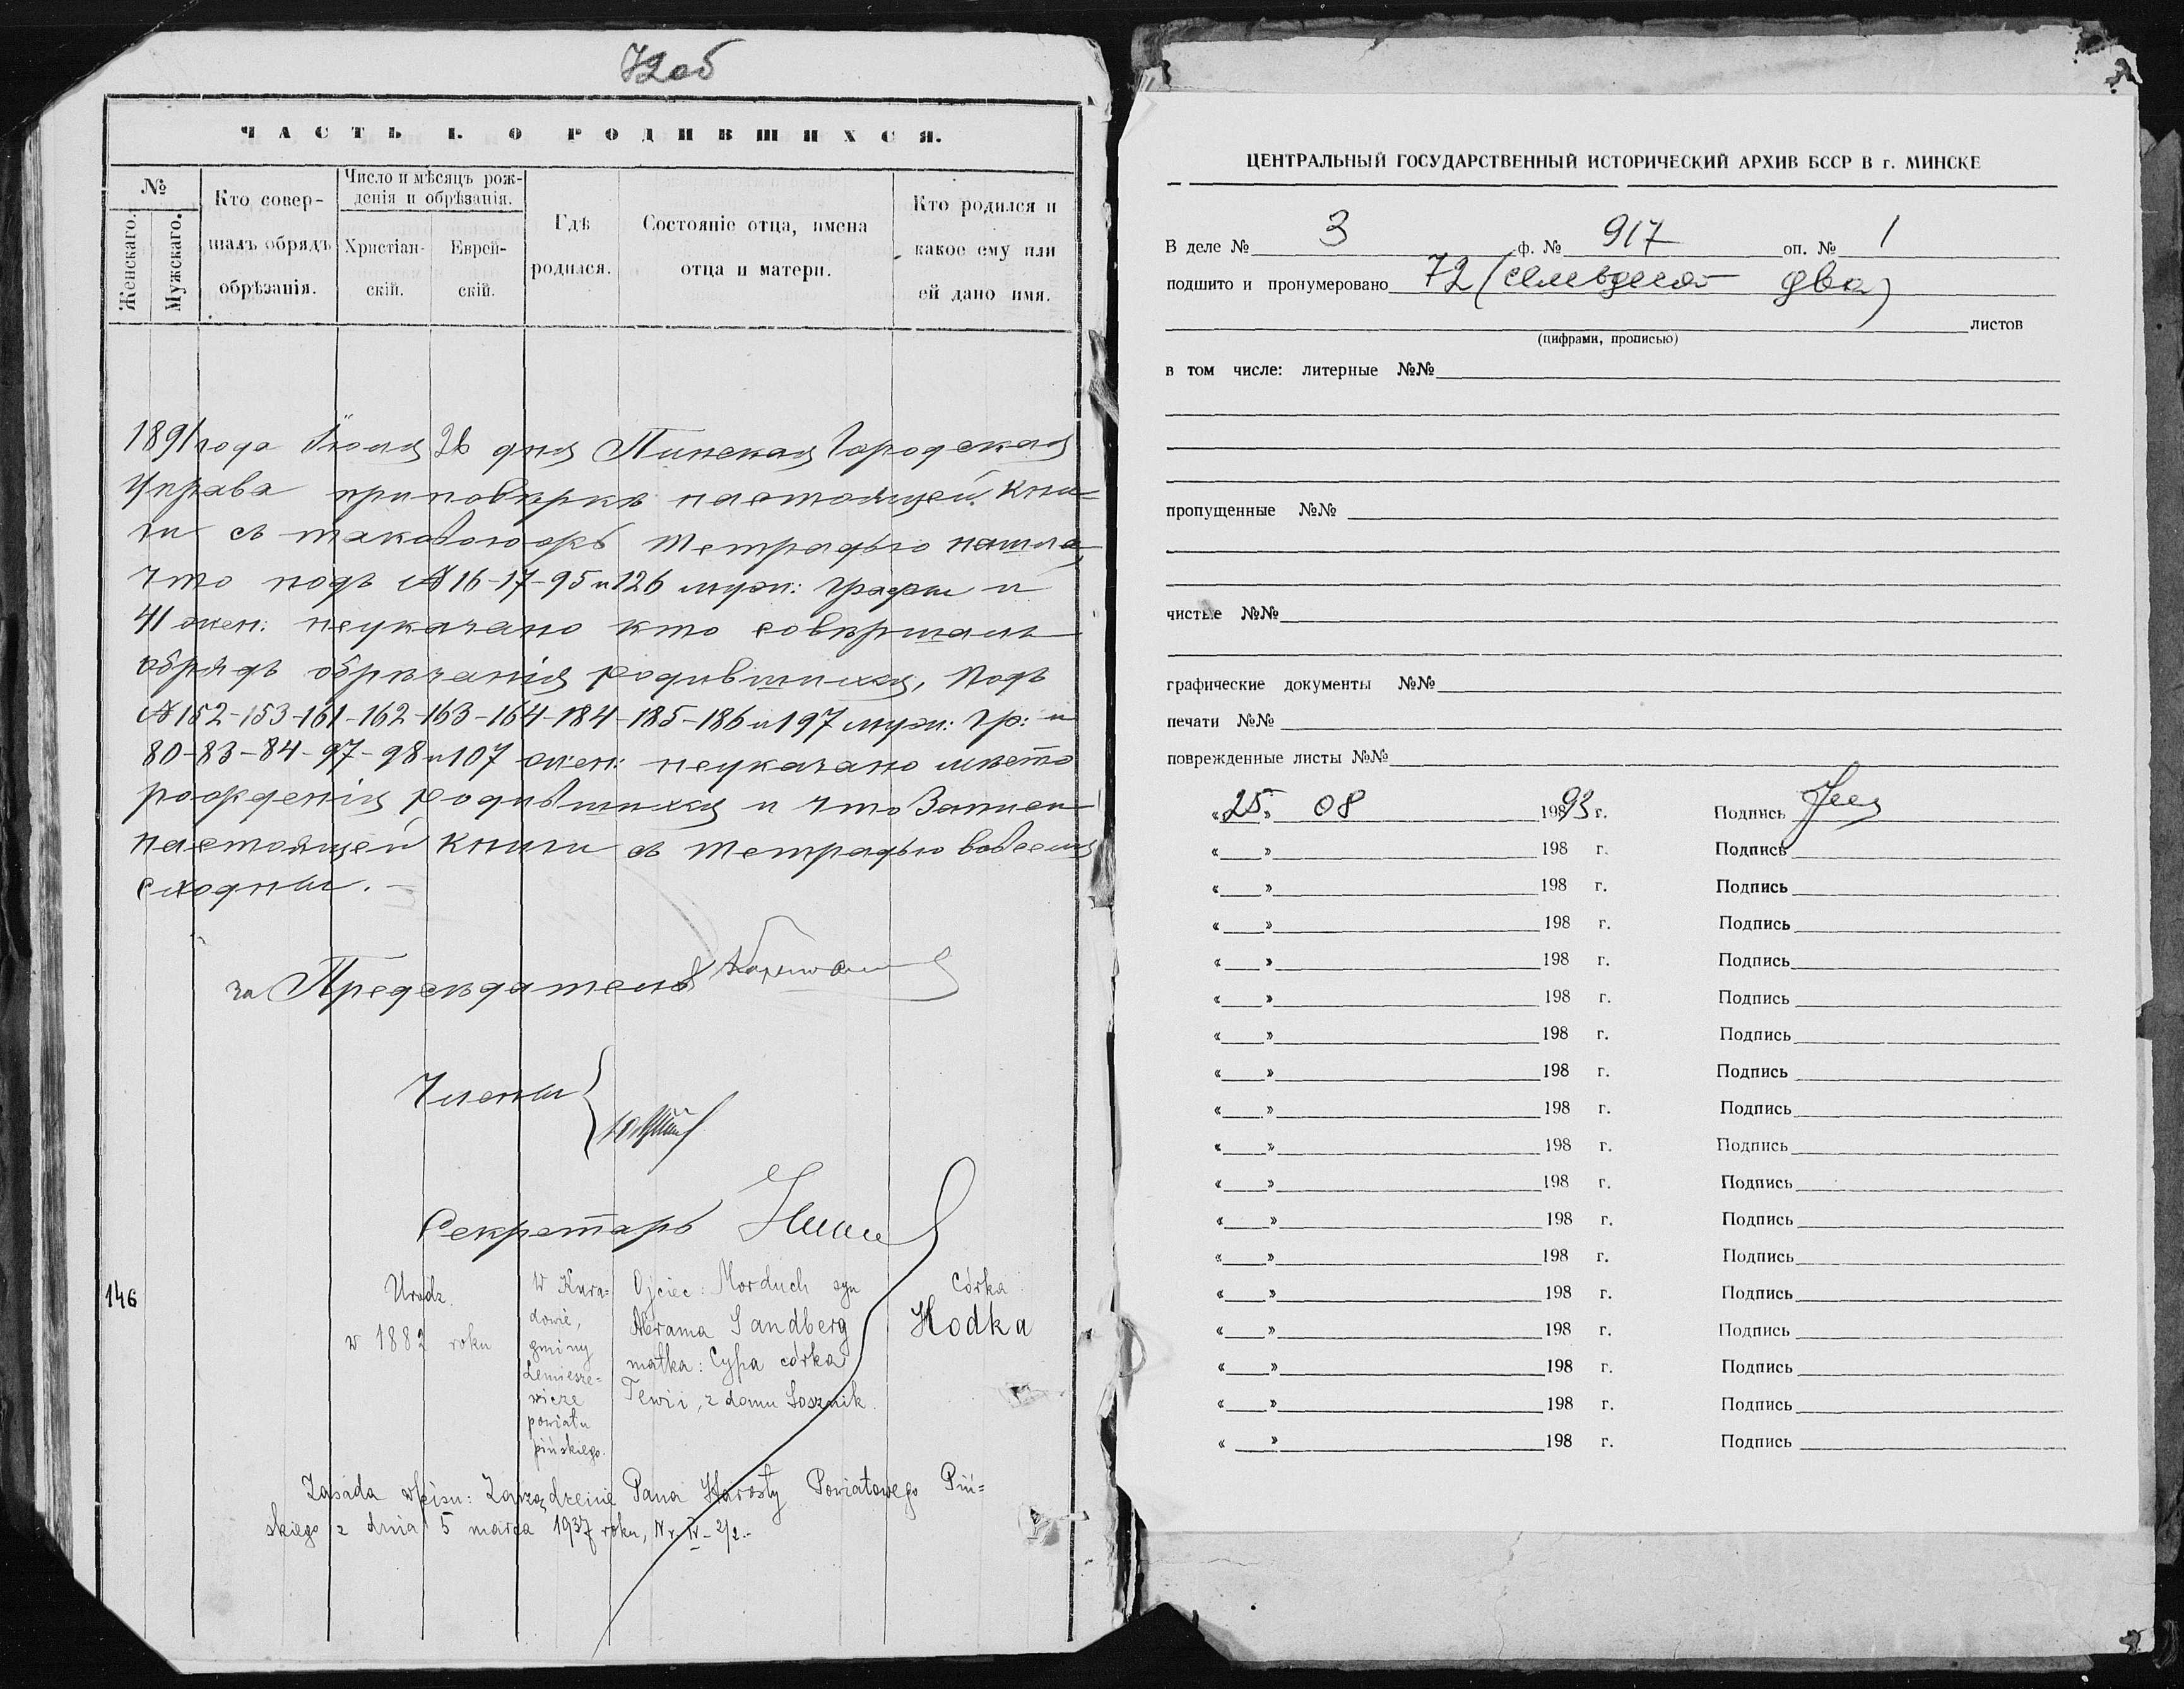 72об
ЧАСТЬ I. О РОДИВШИХСЯ.
№
Женскаго.
Мужскаго.
Кто совер-
шалъ обрядъ
обрѣзанія.
Число и мѣсяцъ рож-
денія и обрѣзанія.
Христіан-
скій.
Еврей-
скій.
Гдѣ
родился.
Состояніе отца, имена
отца и матери.
Кто родился и
какое ему или
ей дано имя.
1891 года Іюля 26 дня Пинская Городская
Управа при повѣркѣ настоящей кни-
ги съ таковою жъ тетрадью нашла,
что подъ № 16-17-95 и 126 муж: графы и
41 жен: неуказано кто совершалъ
обрядъ обрѣзанія родившихся, подъ
№ 152-153-161-162-163-164-184-185-186 и 197 муж: гр: и
80-83-84-97-98 и 107 жен: неуказано мѣсто
рожденія родившихся и что записи
настоящей книги съ тетрадью во всемъ
сходны.-
за Предсѣдателя
Члены
Секретарь
146
Urodz.
w 1882 roku
w Kura-
dowie,
gminy
Lemiesze-
wicze
powiatu
pińskiego.
Ojciec: Morduch syn
Abrama Sandberg
matka: Cypa córka
Tewii, z domu Sosznik.
Córka
Hodka
Zasada wpisu: Zarządzenie Pana Starosty Powiatowego Piń-
skiego z dnia 5 marca 1937 roku, Nr. IV-2/2.-
ЦЕНТРАЛЬНЫЙ ГОСУДАРСТВЕННЫЙ ИСТОРИЧЕСКИЙ АРХИВ БССР В г. МИНСКЕ
В деле № 3 ф. № 917 оп. № 1
подшито и пронумеровано 72 (семьдесят два)
листов
(цифрами, прописью)
в том числе: литерные №№
пропущенные №№
чистые №№
графические документы №№
печати №№
поврежденные листы №№
«25» 08 19893 г. Подпись
« » 198 г. Подпись
« » 198 г. Подпись
« » 198 г. Подпись
« » 198 г. Подпись
« » 198 г. Подпись
« » 198 г. Подпись
« » 198 г. Подпись
« » 198 г. Подпись
« » 198 г. Подпись
« » 198 г. Подпись
« » 198 г. Подпись
« » 198 г. Подпись
« » 198 г. Подпись
« » 198 г. Подпись
« » 198 г. Подпись
« » 198 г. Подпись
« » 198 г. Подпись